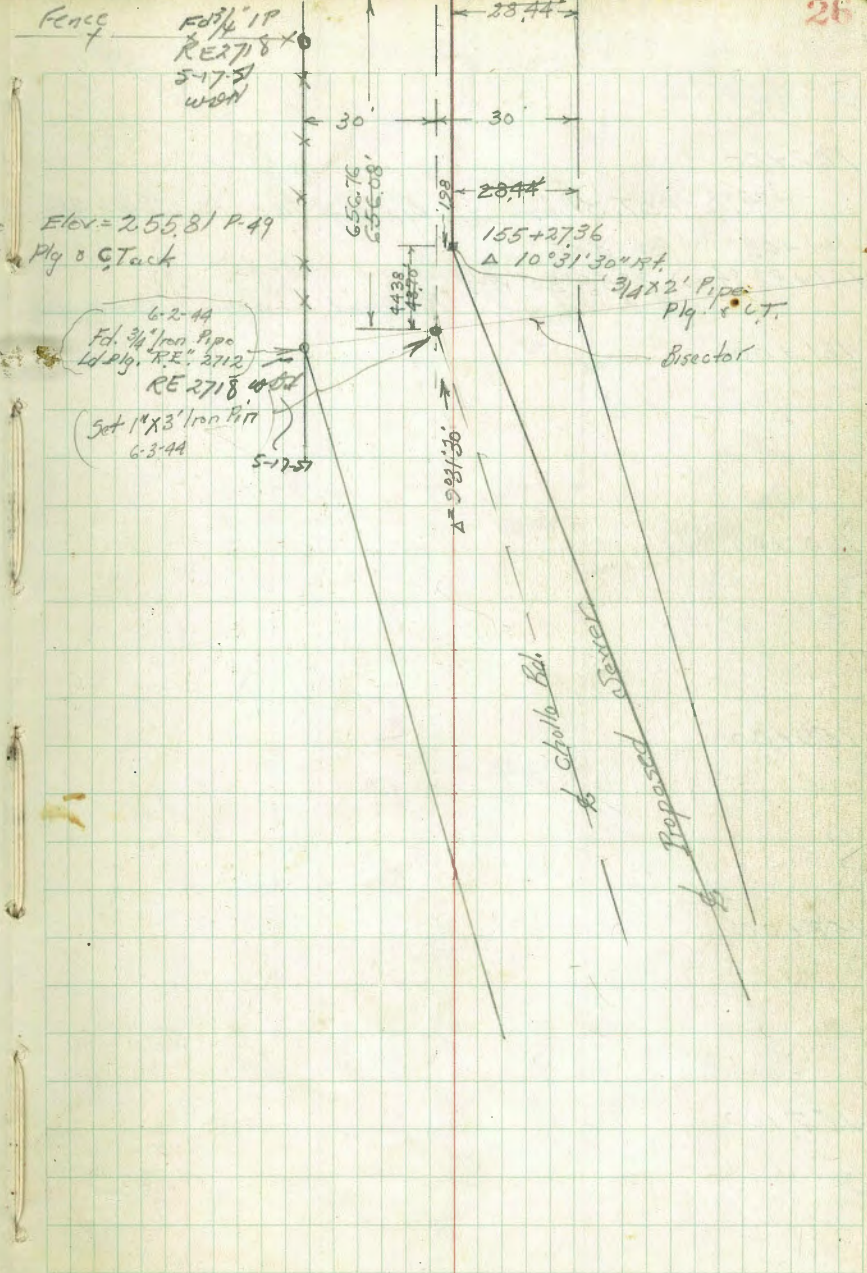 26
Fence
Fd 3/4" IP
RE 2718
5-17-51
28.44'
30'
30'
656.76
656.08'
1.98
28.44'
Elev.= 255.81 P-49
Plg & C. Tack
155+27.36
Δ 10°31'30" Rt.
3/4 X 2' Pipe
Plg. & C.T.
44.38
43.70'
Bisector
6-2-44
Fd. 3/4" Iron Pipe
Ld. Plg. "R.E." 2712
RE 2718
Set 1" X 3' Iron Pin
6-3-44
5-17-51
Δ = 9°31'30"
℄ Cholla Rd.
℄ Proposed Sewer